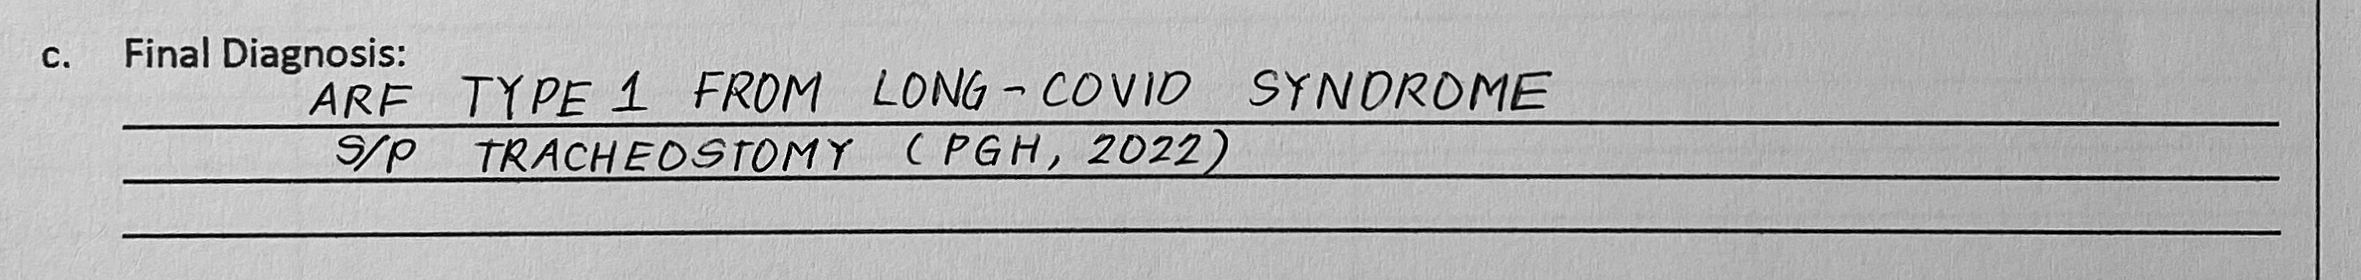 c. Final Diagnosis:
ARF TYPE 1 FROM LONG-COVID SYNDROME
S/P TRACHEOSTOMY (PGH, 2022)